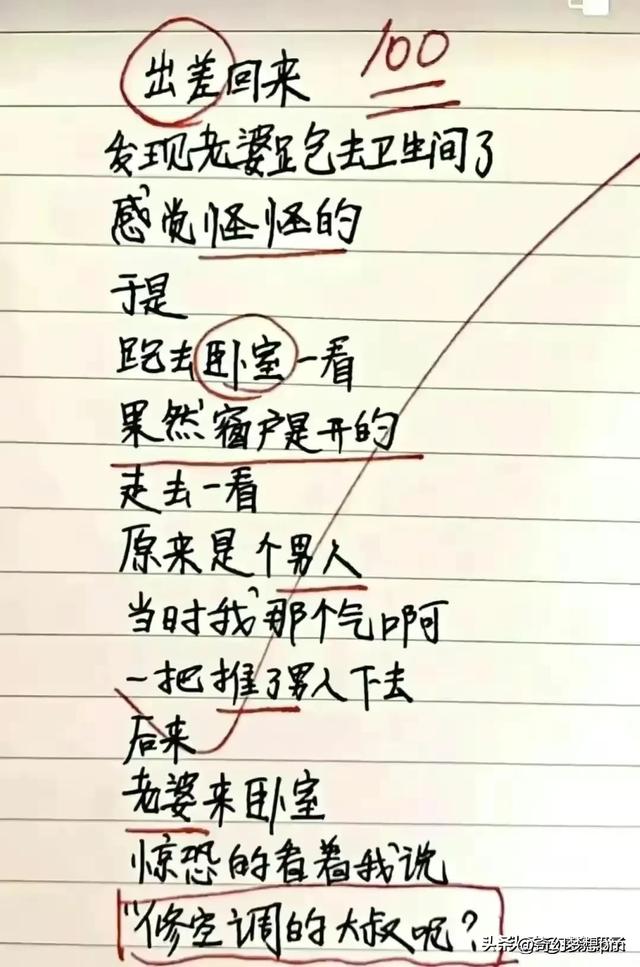 出差回来
100
发现老婆跑去卫生间了
感觉怪怪的
于是
跑去卧室一看
果然窗户是开的
走去一看
原来是个男人
当时我那个气啊
一把推了男人下去
后来
老婆来卧室
惊恐的看着我说
"修空调的大叔呢？